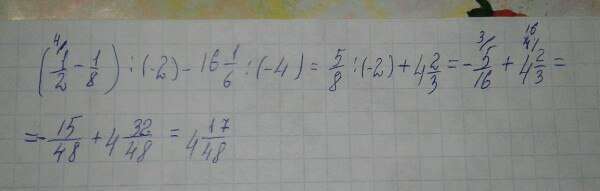 (⁴/ 1/2 - 1/8) : (-2) - 16 1/6 : (-4) = 5/8 : (-2) + 4 2/3 = - ³/ 5/16 + ¹⁶/ 4 2/3 =
= - 15/48 + 4 32/48 = 4 17/48